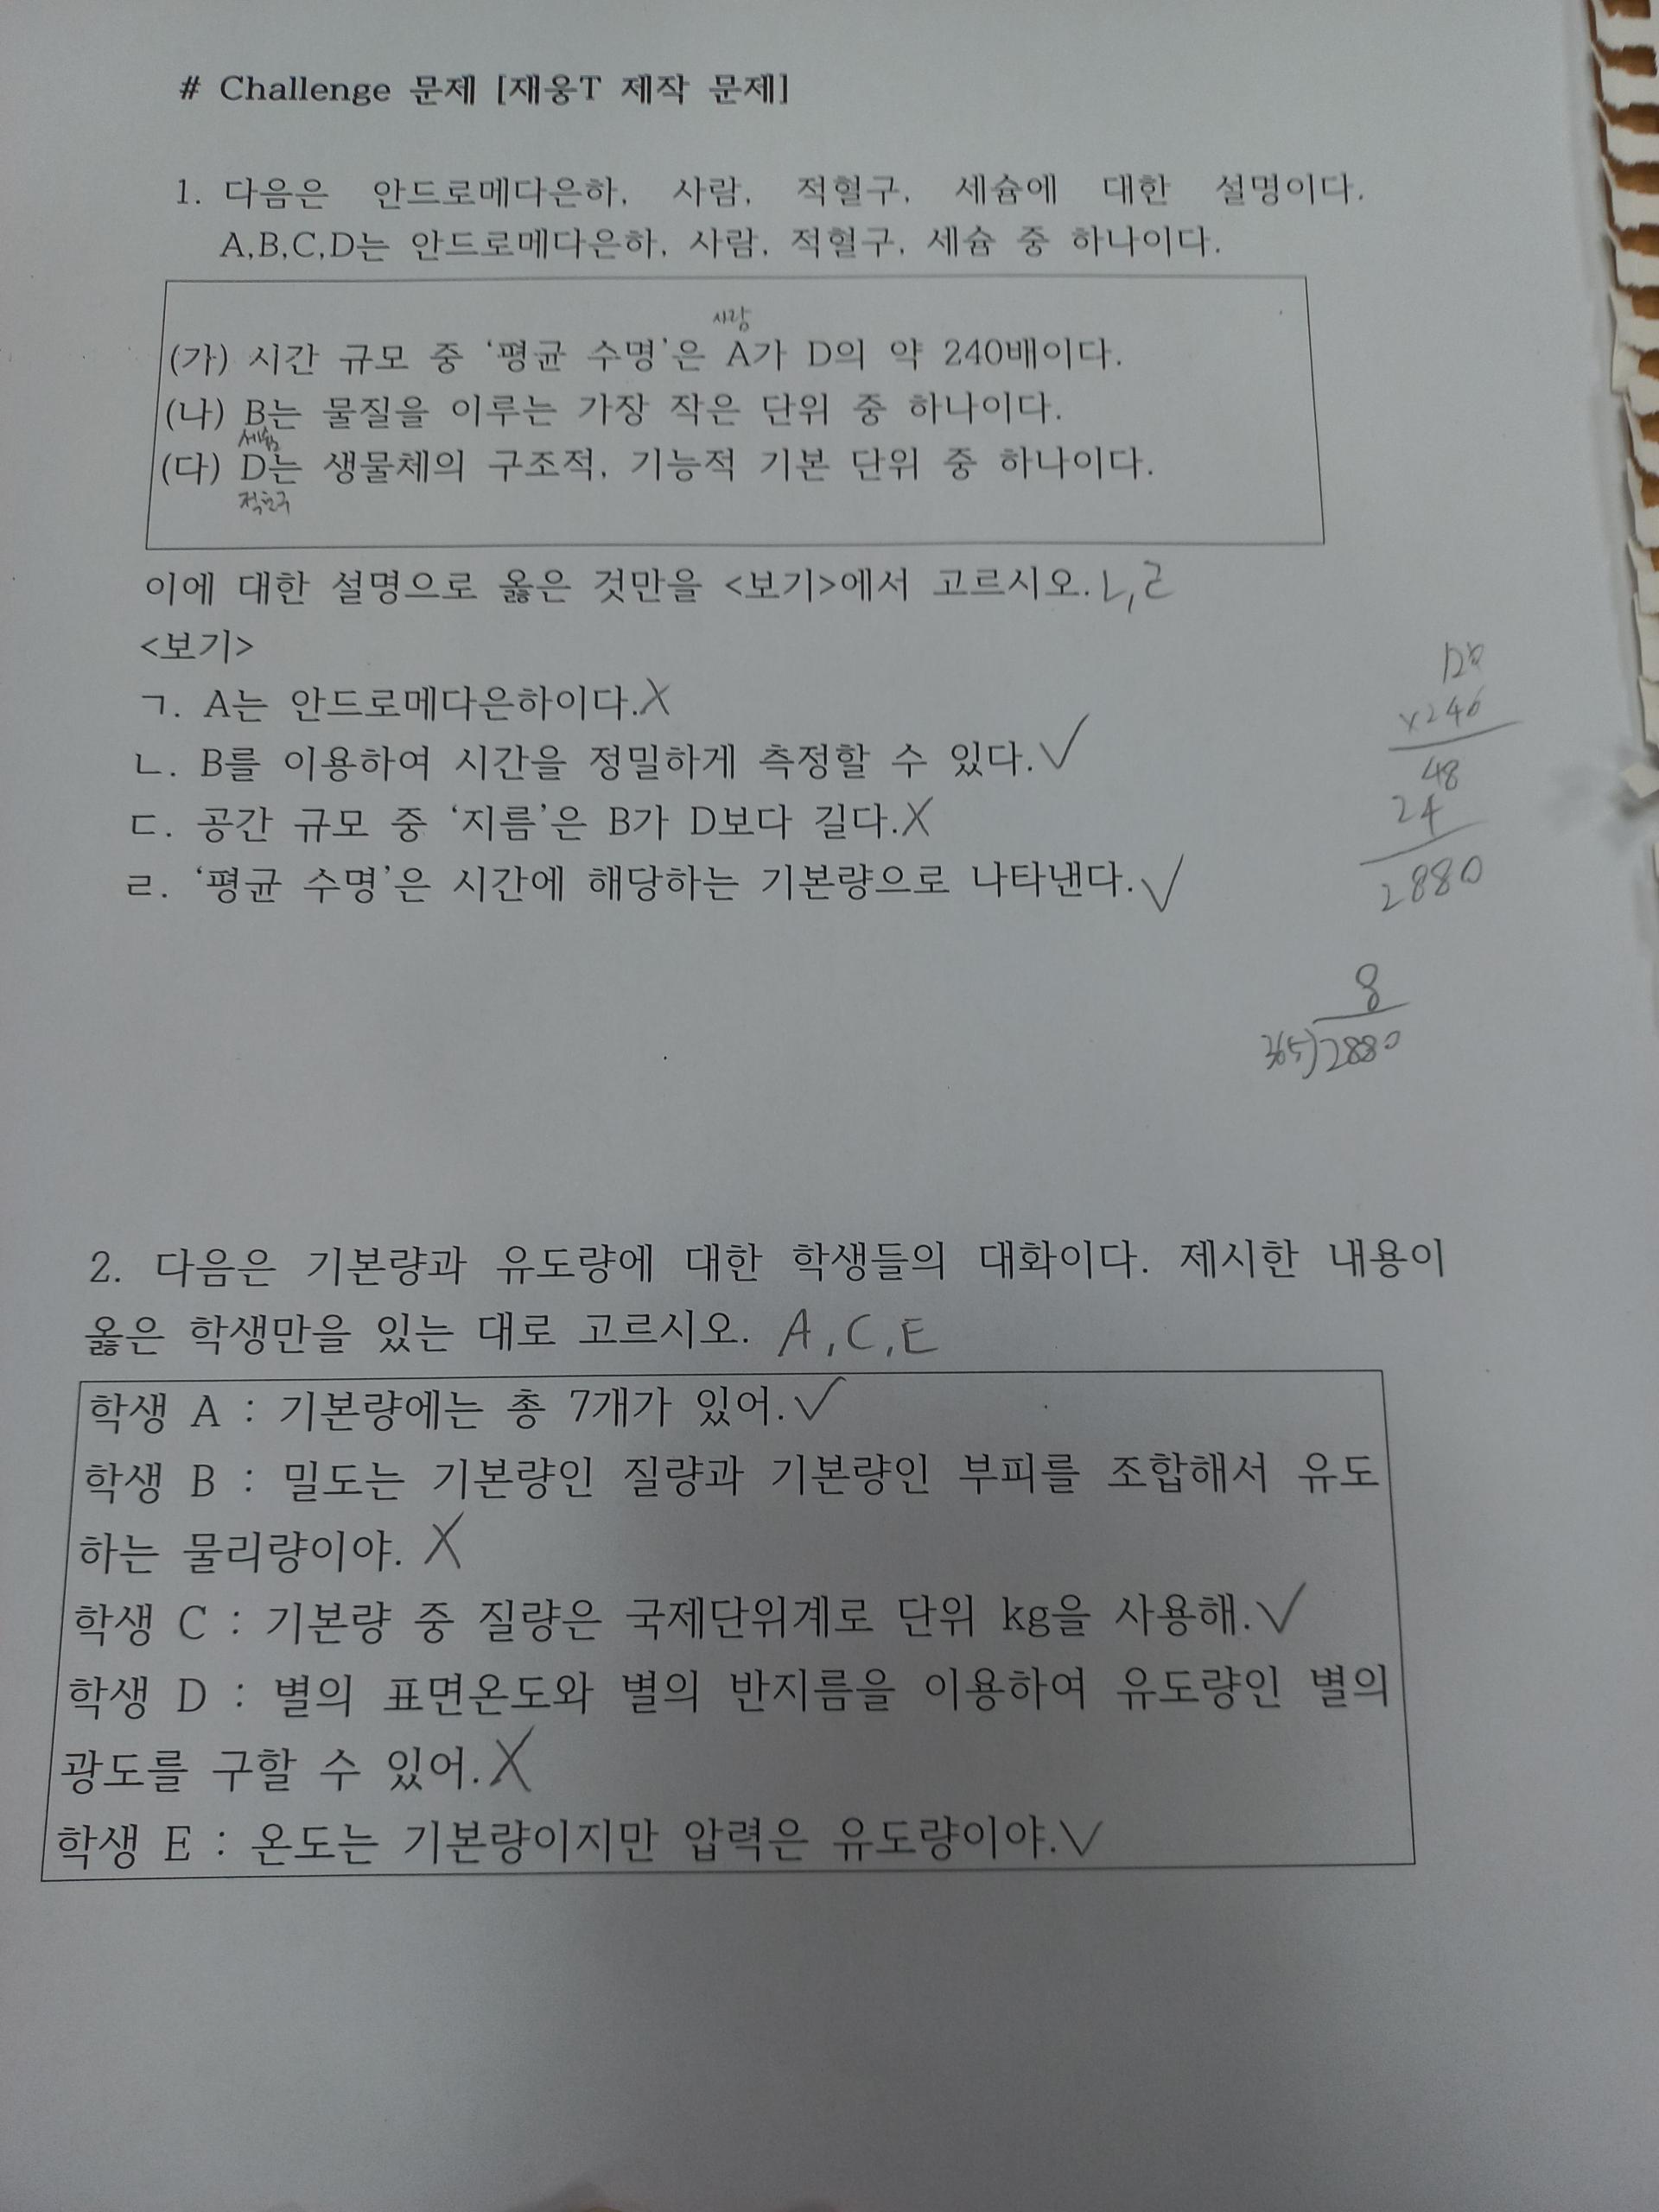 # Challenge 문제 [재웅T 제작 문제]
1. 다음은 안드로메다은하, 사람, 적혈구, 세슘에 대한 설명이다.
A,B,C,D는 안드로메다은하, 사람, 적혈구, 세슘 중 하나이다.
사람
(가) 시간 규모 중 '평균 수명'은 A가 D의 약 240배이다.
(나) B는 물질을 이루는 가장 작은 단위 중 하나이다.
세슘
(다) D는 생물체의 구조적, 기능적 기본 단위 중 하나이다.
적혈구
이에 대한 설명으로 옳은 것만을 <보기>에서 고르시오. ㄴ,ㄹ
<보기>
ㄱ. A는 안드로메다은하이다. X
ㄴ. B를 이용하여 시간을 정밀하게 측정할 수 있다. ✓
ㄷ. 공간 규모 중 '지름'은 B가 D보다 길다. X
ㄹ. '평균 수명'은 시간에 해당하는 기본량으로 나타낸다. ✓
120
x240
48
24
2880
8
365)2880
2. 다음은 기본량과 유도량에 대한 학생들의 대화이다. 제시한 내용이
옳은 학생만을 있는 대로 고르시오. A, C, E
학생 A : 기본량에는 총 7개가 있어. ✓
학생 B : 밀도는 기본량인 질량과 기본량인 부피를 조합해서 유도
하는 물리량이야. X
학생 C : 기본량 중 질량은 국제단위계로 단위 kg을 사용해. ✓
학생 D : 별의 표면온도와 별의 반지름을 이용하여 유도량인 별의
광도를 구할 수 있어. X
학생 E : 온도는 기본량이지만 압력은 유도량이야. ✓